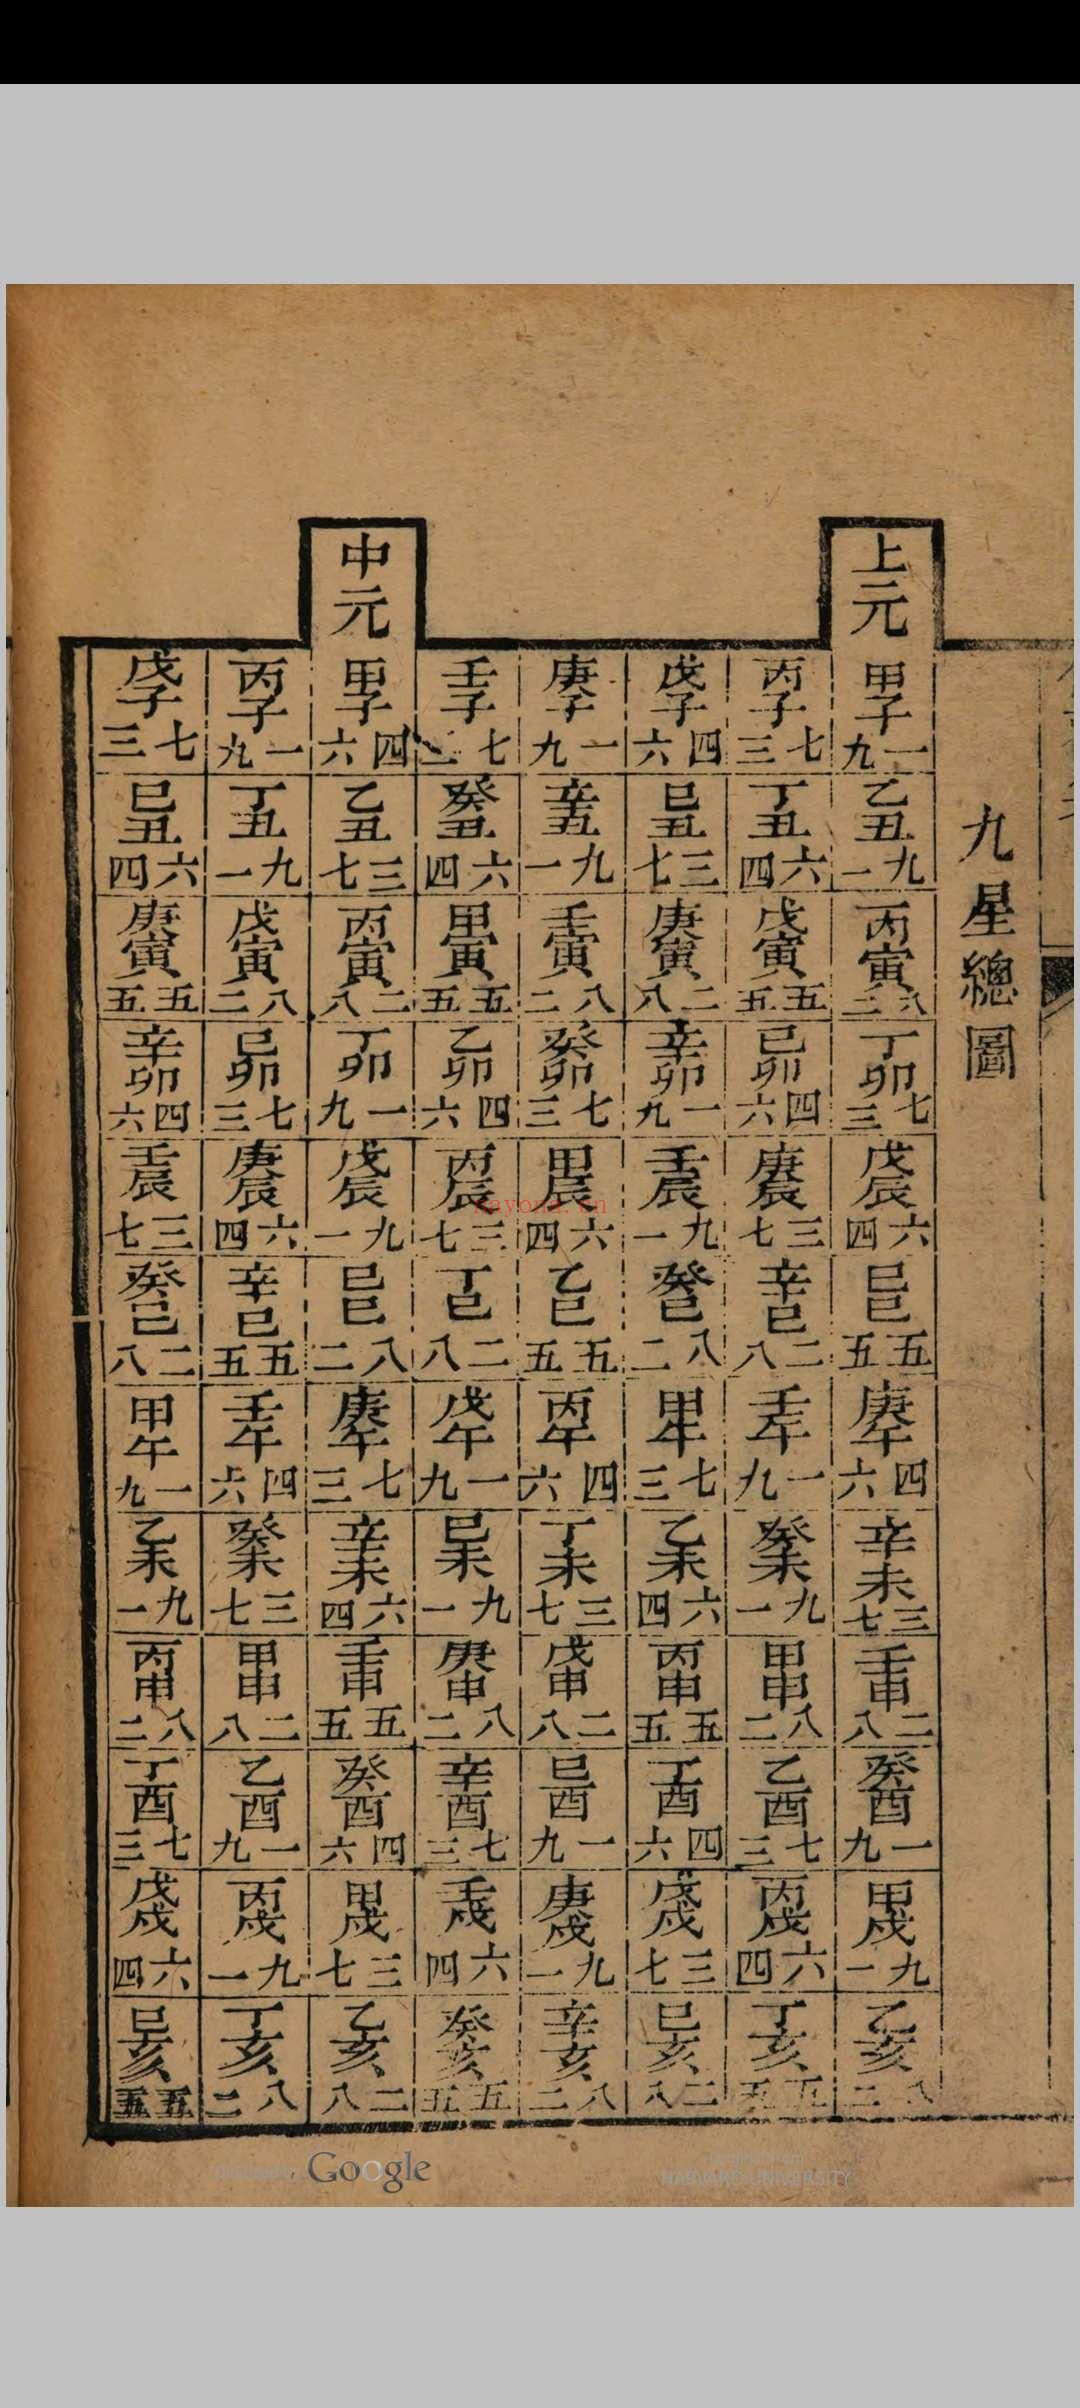 九星總圖
上元
甲子 一九 乙丑 九一 丙寅 八二 丁卯 七三 戊辰 六四 己巳 五五 庚午 四六 辛未 三七 壬申 二八 癸酉 一九 甲戌 九一 乙亥 八二
丙子 七三 丁丑 六四 戊寅 五五 己卯 四六 庚辰 三七 辛巳 二八 壬午 一九 癸未 九一 甲申 八二 乙酉 七三 丙戌 六四 丁亥 五五
戊子 四六 己丑 三七 庚寅 二八 辛卯 一九 壬辰 九一 癸巳 八二 甲午 七三 乙未 六四 丙申 五五 丁酉 四六 戊戌 三七 己亥 二八
庚子 一九 辛丑 九一 壬寅 八二 癸卯 七三 甲辰 六四 乙巳 五五 丙午 四六 丁未 三七 戊申 二八 己酉 一九 庚戌 九一 辛亥 八二
壬子 七三 癸丑 六四 甲寅 五五 乙卯 四六 丙辰 三七 丁巳 二八 戊午 一九 己未 九一 庚申 八二 辛酉 七三 壬戌 六四 癸亥 五五
中元
甲子 四六 乙丑 三七 丙寅 二八 丁卯 一九 戊辰 九一 己巳 八二 庚午 七三 辛未 六四 壬申 五五 癸酉 四六 甲戌 三七 乙亥 二八
丙子 一九 丁丑 九一 戊寅 八二 己卯 七三 庚辰 六四 辛巳 五五 壬午 四六 癸未 三七 甲申 二八 乙酉 一九 丙戌 九一 丁亥 八二
戊子 七三 己丑 六四 庚寅 五五 辛卯 四六 壬辰 三七 癸巳 二八 甲午 一九 乙未 九一 丙申 八二 丁酉 七三 戊戌 六四 己亥 五五
nayona.cn
Google
Original from
HARVARD UNIVERSITY